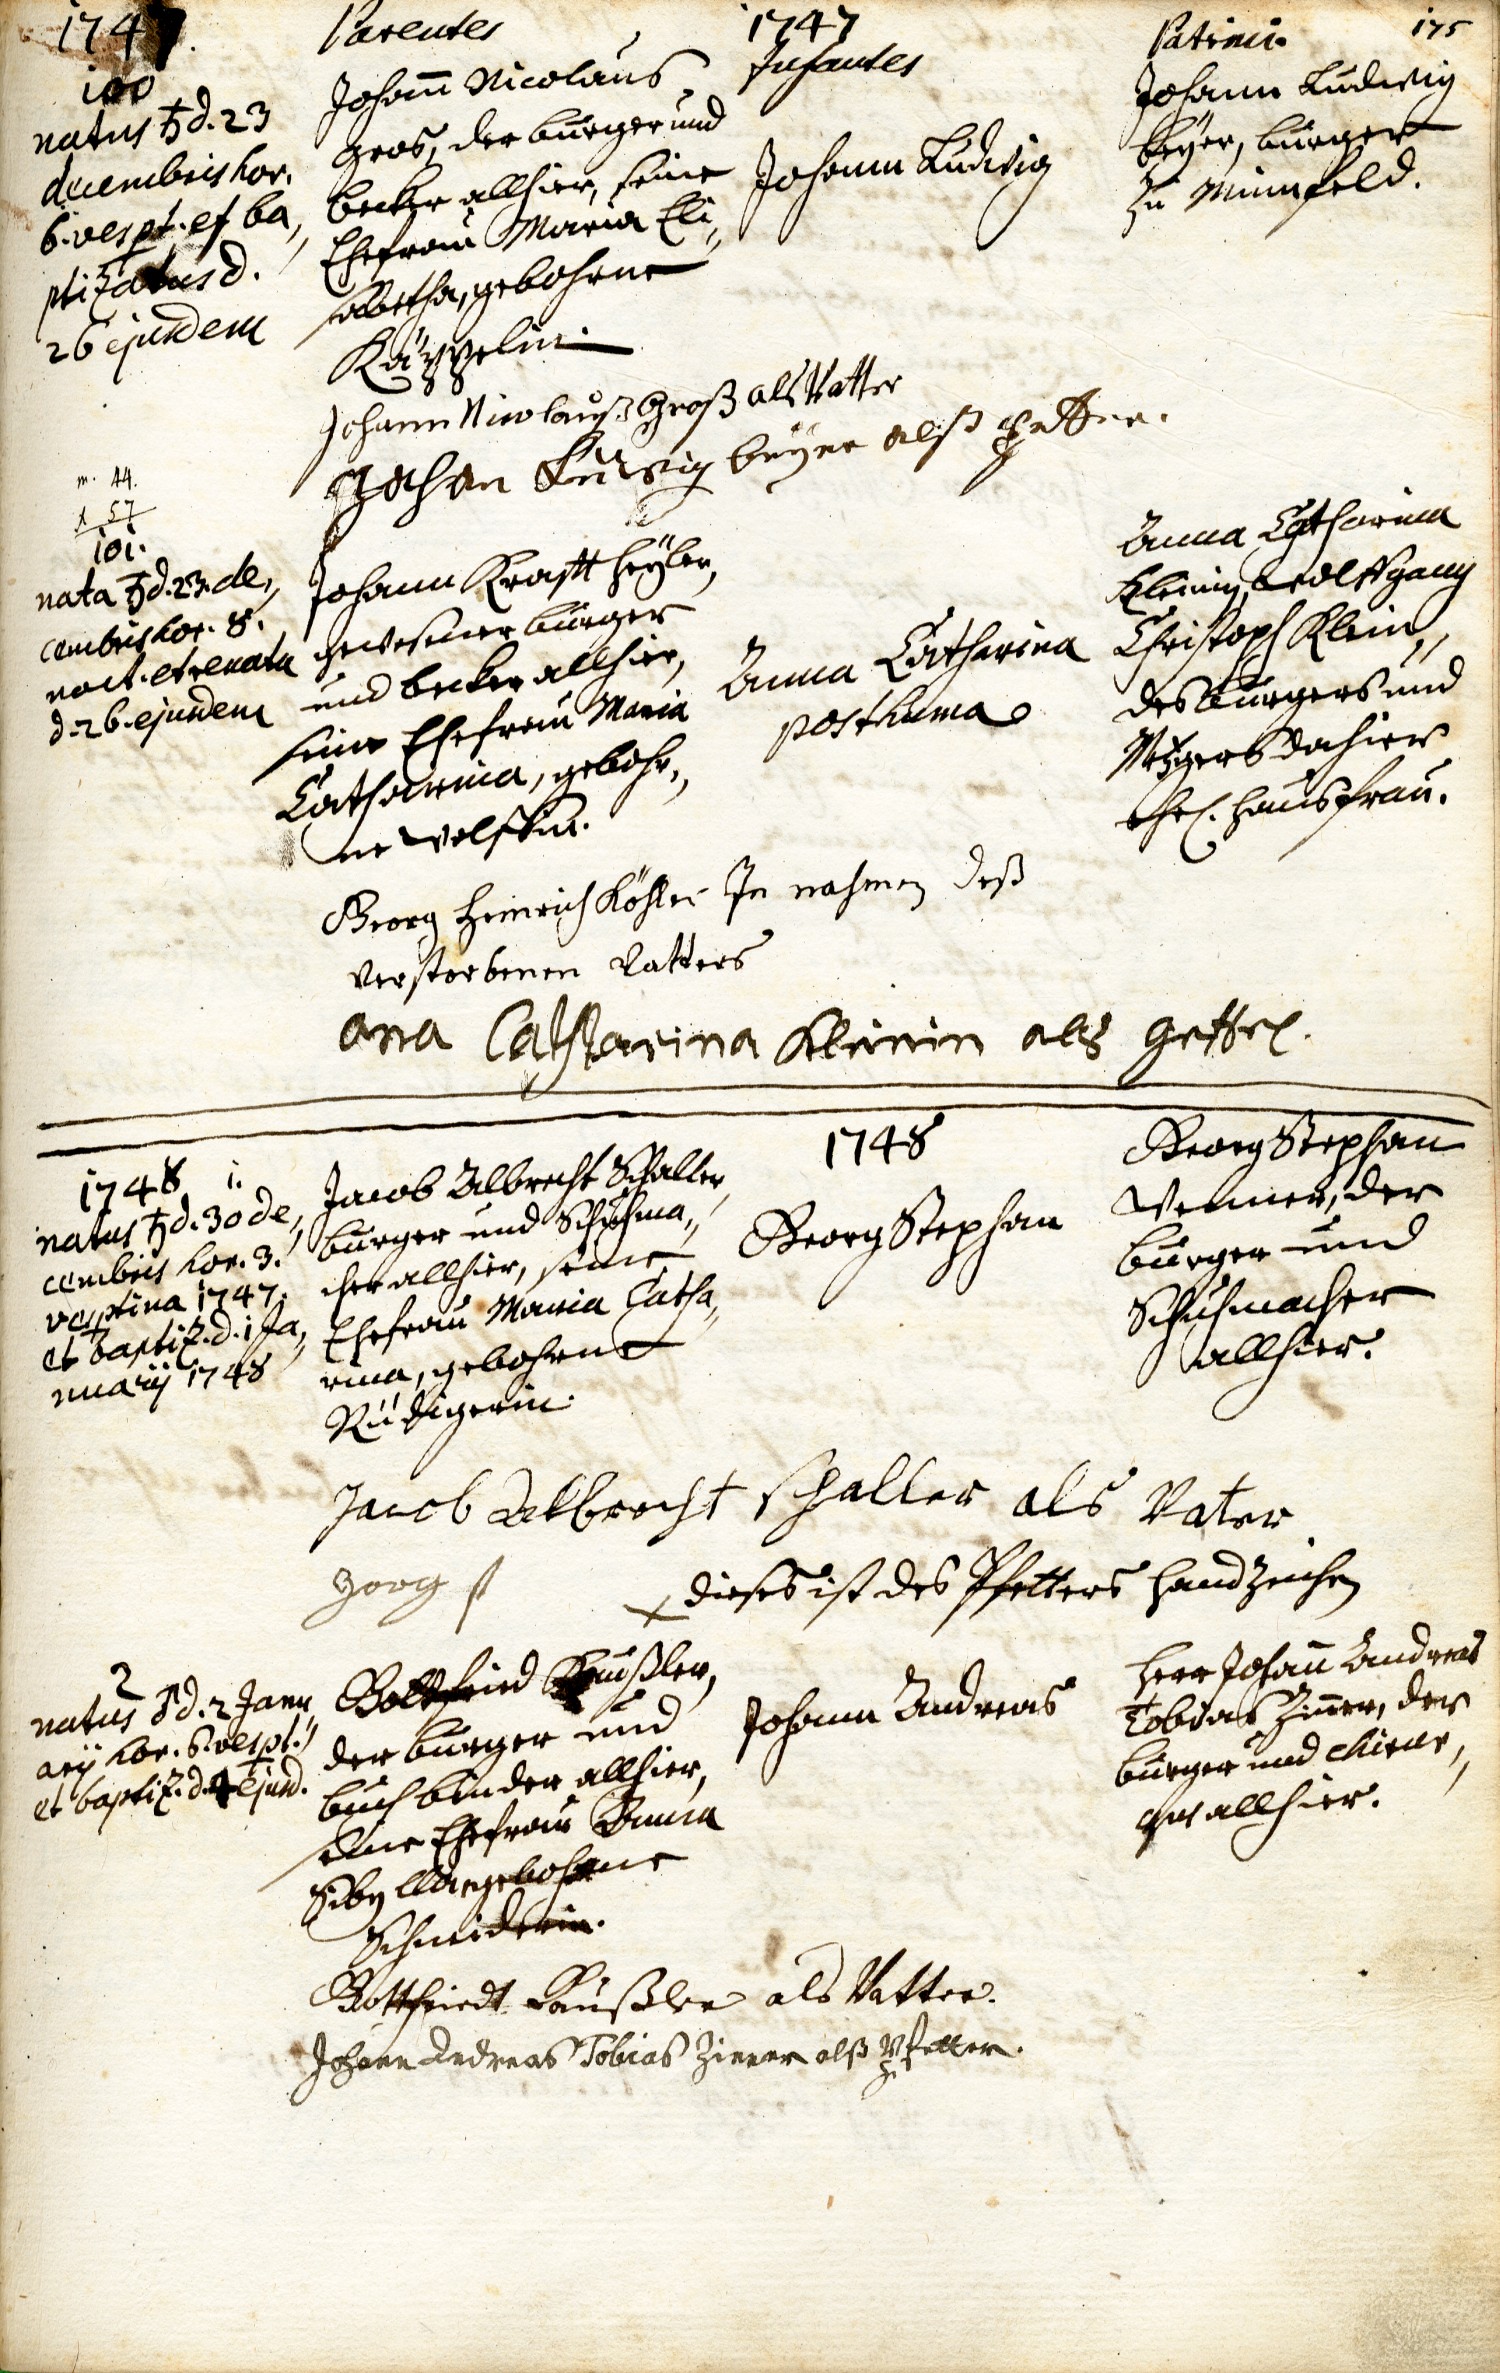 1747.
Parentes
1747
Infantes
Patrini.
175
100
natus ♄ d. 23
decembris hor.
6. vespt. et ba,,
ptizatus d.
26 ejusdem
Johann Nicolaus
Gros, der burger und
becker allhier, seine
Ehefrau Maria Eli,,
sabetha, gebohrne
Käppelin.
Johann Ludwig
Johann Ludwig
beÿer, burger
zu Minnfeld.
Johann Nicolauß Groß als Vatter
Johan Ludwig beyer alß Petter.
m. 44.
f 57
101.
nata ♄ d. 23. de,,
cembris hor. 8.
noct. et renata
d. 26. ejusdem
Johann Krafft Heÿler,
gewesener burger
und becker allhier,
seine Ehefrau Maria
Catharina, gebohr,,
ne Wolffin.
Anna Catharina
posthuma
Anna Catharina
Kleinin, Wolffgang
Christoph Klein,,
des burgers und
Mezgers dahier
ehel. hausfrau.
Georg Heinrich Köhler In nahmen deß
verstorbenen Vatters
ana Catharina Kleinin als gettel.
1748 1.
natus ♄ d. 30 de,,
cembris hor. 3.
vesptina 1747.
et baptiz. d. 1 Ja,,
nuarij 1748
Jacob Albrecht Schaller,
burger und Schuhma,,
cher allhier, seine
Ehefrau Maria Catha,,
rina, gebohrne
Rüdigerin.
1748
Georg Stephan
Georg Stephan
Wenner, der
burger und
Schuhmacher
allhier.
Jacob Albrecht Schaller als Vater
Georg st
x dieses ist des Pfetters handzeichen
2
natus ♂ d. 2 Janu,,
arij hor. 6. vespt.
et baptiz. d. 4 ejusd.
Gottfried Häußler,
der burger und
buchbinder allhier,
seine Ehefrau Anna
Sibylla, gebohrne
Schneiderin.
Johann Andreas
Herr Johann Andreas
Tobias Zinner, der
burger und chirur,,
gus allhier.
Gottfriedt Häußler als Vatter.
Johann Andreas Tobias Zinner alß Pfetter.